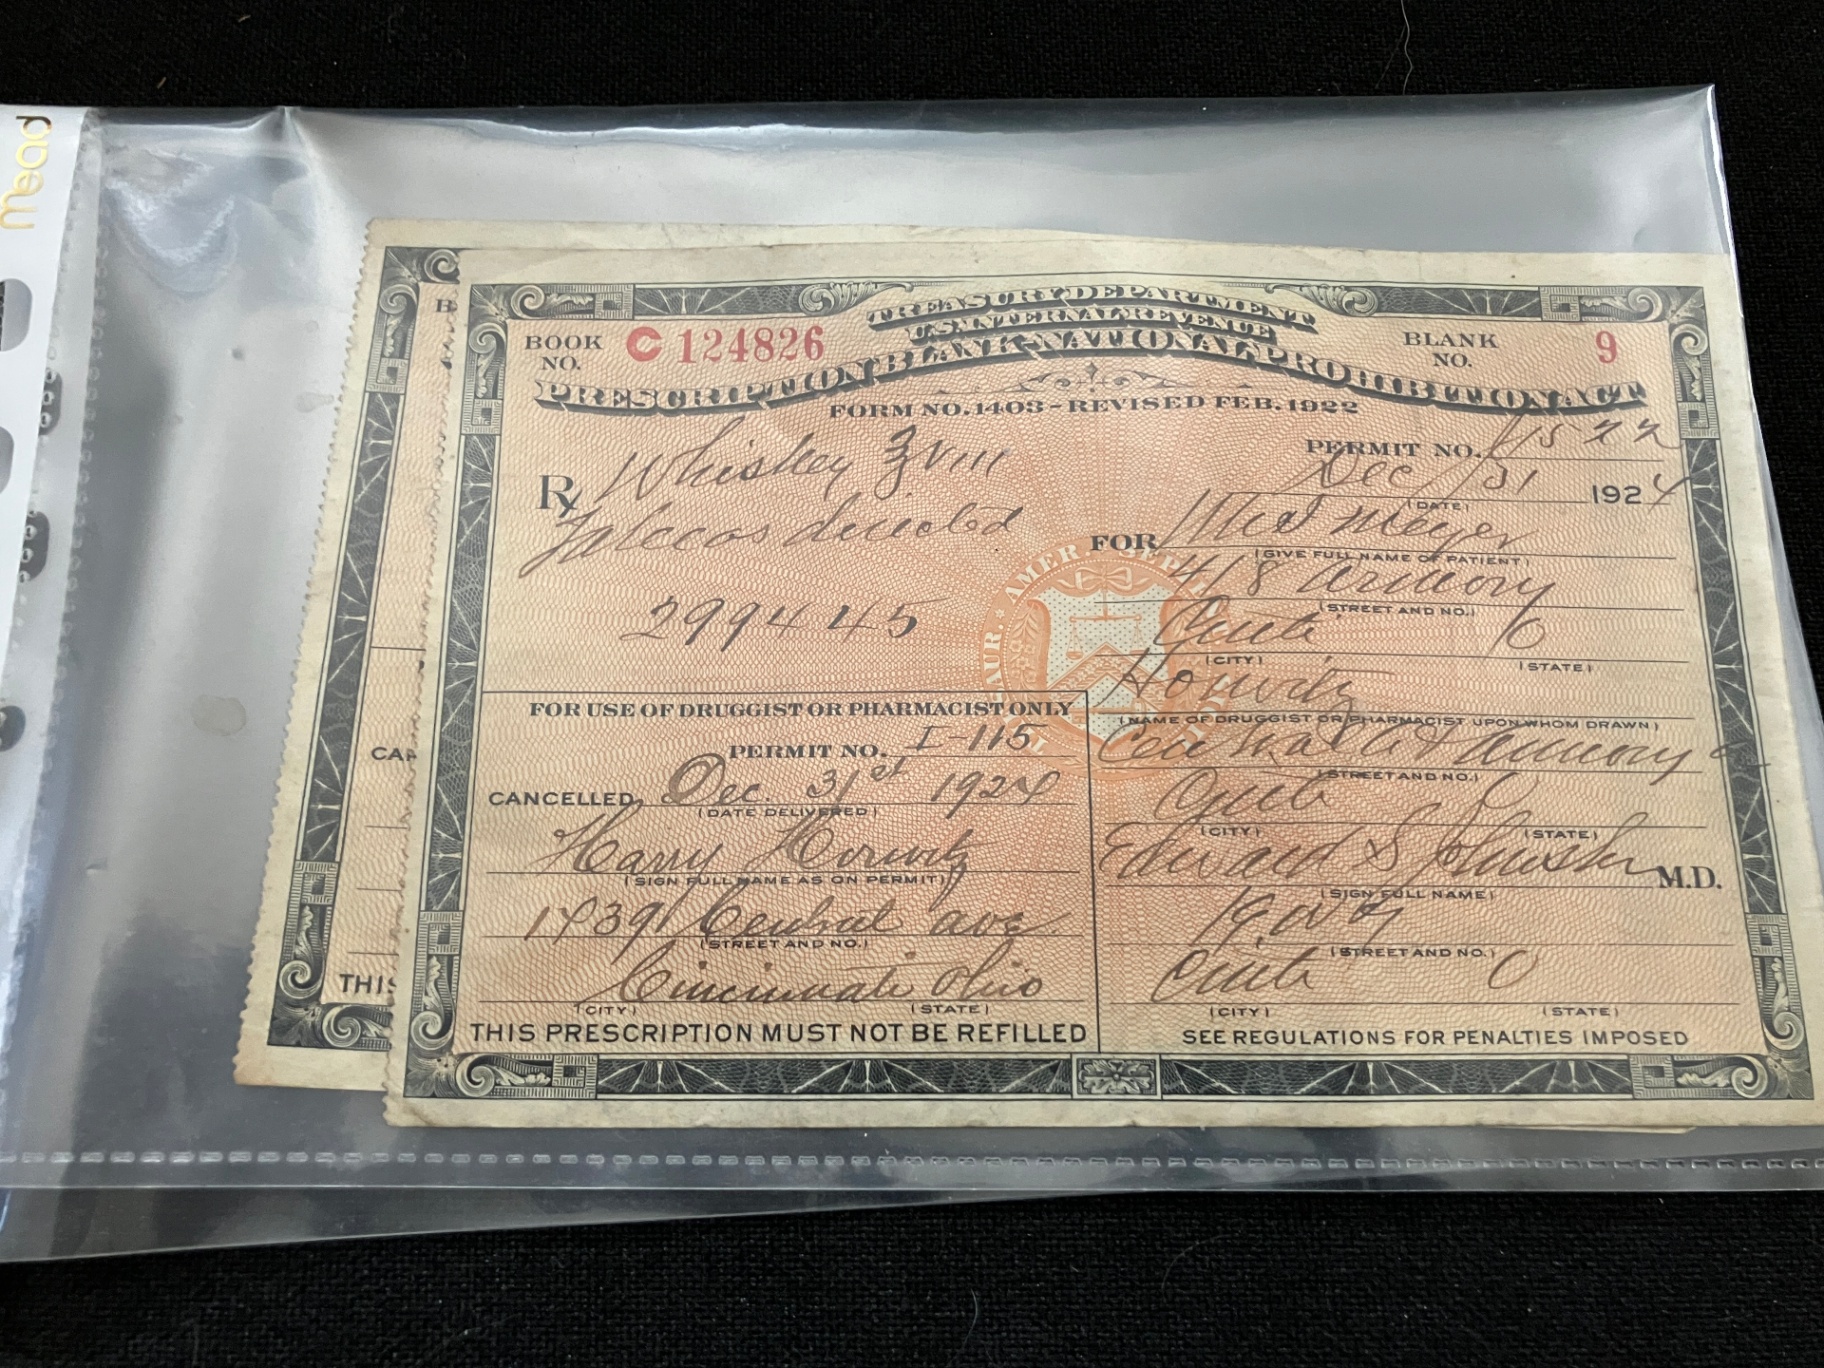 mead
TREASURY DEPARTMENT
U.S. INTERNAL REVENUE
PRESCRIPTION BLANK-NATIONAL PROHIBITION ACT
FORM NO. 1403-REVISED FEB. 1922
BOOK NO. C 124826
BLANK NO. 9
PERMIT NO. 1522
Rx Whiskey ℥ viii
directed
299445
Dec 31 1924
(DATE)
FOR Meyer
(GIVE FULL NAME OF PATIENT)
418 Armory
(STREET AND NO.)
Cinti O
(CITY) (STATE)
Horwitz
(NAME OF DRUGGIST OR PHARMACIST UPON WHOM DRAWN)
Central & Armory
(STREET AND NO.)
Cinti O
(CITY) (STATE)
Edward S M.D.
(SIGN FULL NAME)
(STREET AND NO.)
Cinti O
(CITY) (STATE)
SEE REGULATIONS FOR PENALTIES IMPOSED
FOR USE OF DRUGGIST OR PHARMACIST ONLY
PERMIT NO. I-115
CANCELLED Dec. 31st 1924
(DATE DELIVERED)
Harry Horwitz
(SIGN FULL NAME AS ON PERMIT)
1739 Central ave
(STREET AND NO.)
Cincinnati Ohio
(CITY) (STATE)
THIS PRESCRIPTION MUST NOT BE REFILLED
B
CAN
THIS